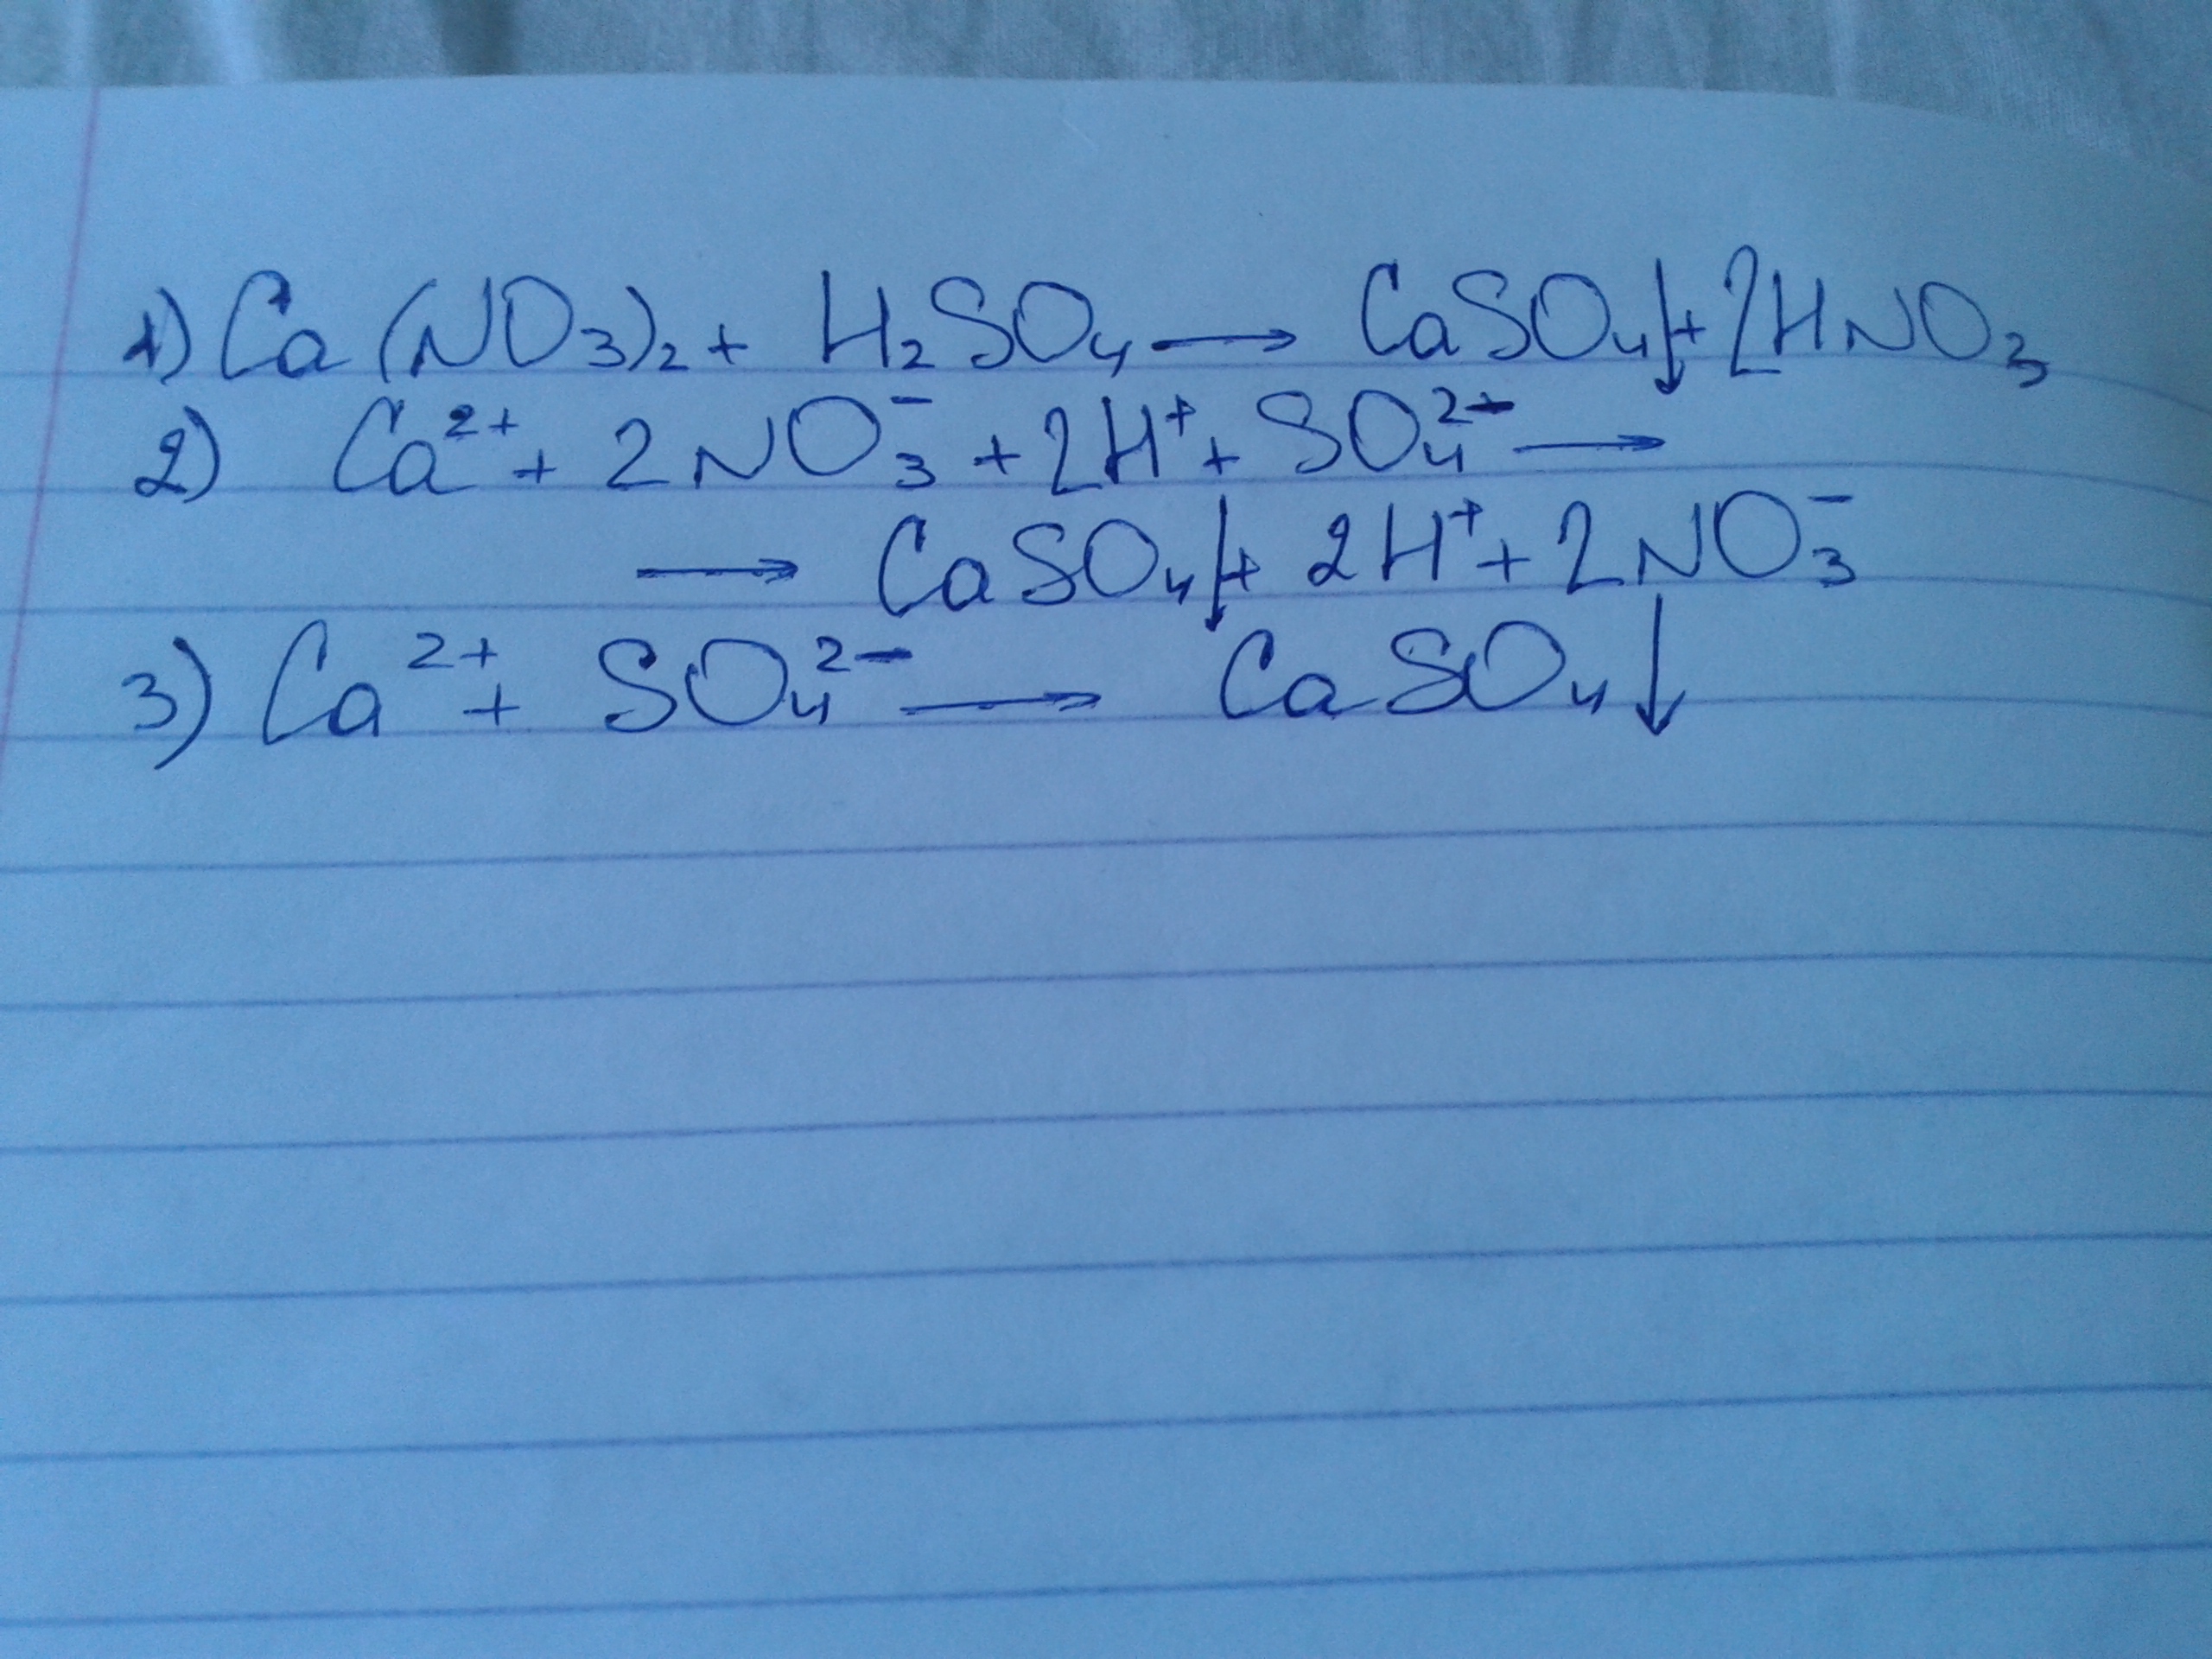 1) Ca(NO₃)₂ + H₂SO₄ → CaSO₄↓ + 2HNO₃
2) Ca²⁺ + 2NO₃⁻ + 2H⁺ + SO₄²⁻ →
→ CaSO₄↓ + 2H⁺ + 2NO₃⁻
3) Ca²⁺ + SO₄²⁻ → CaSO₄↓